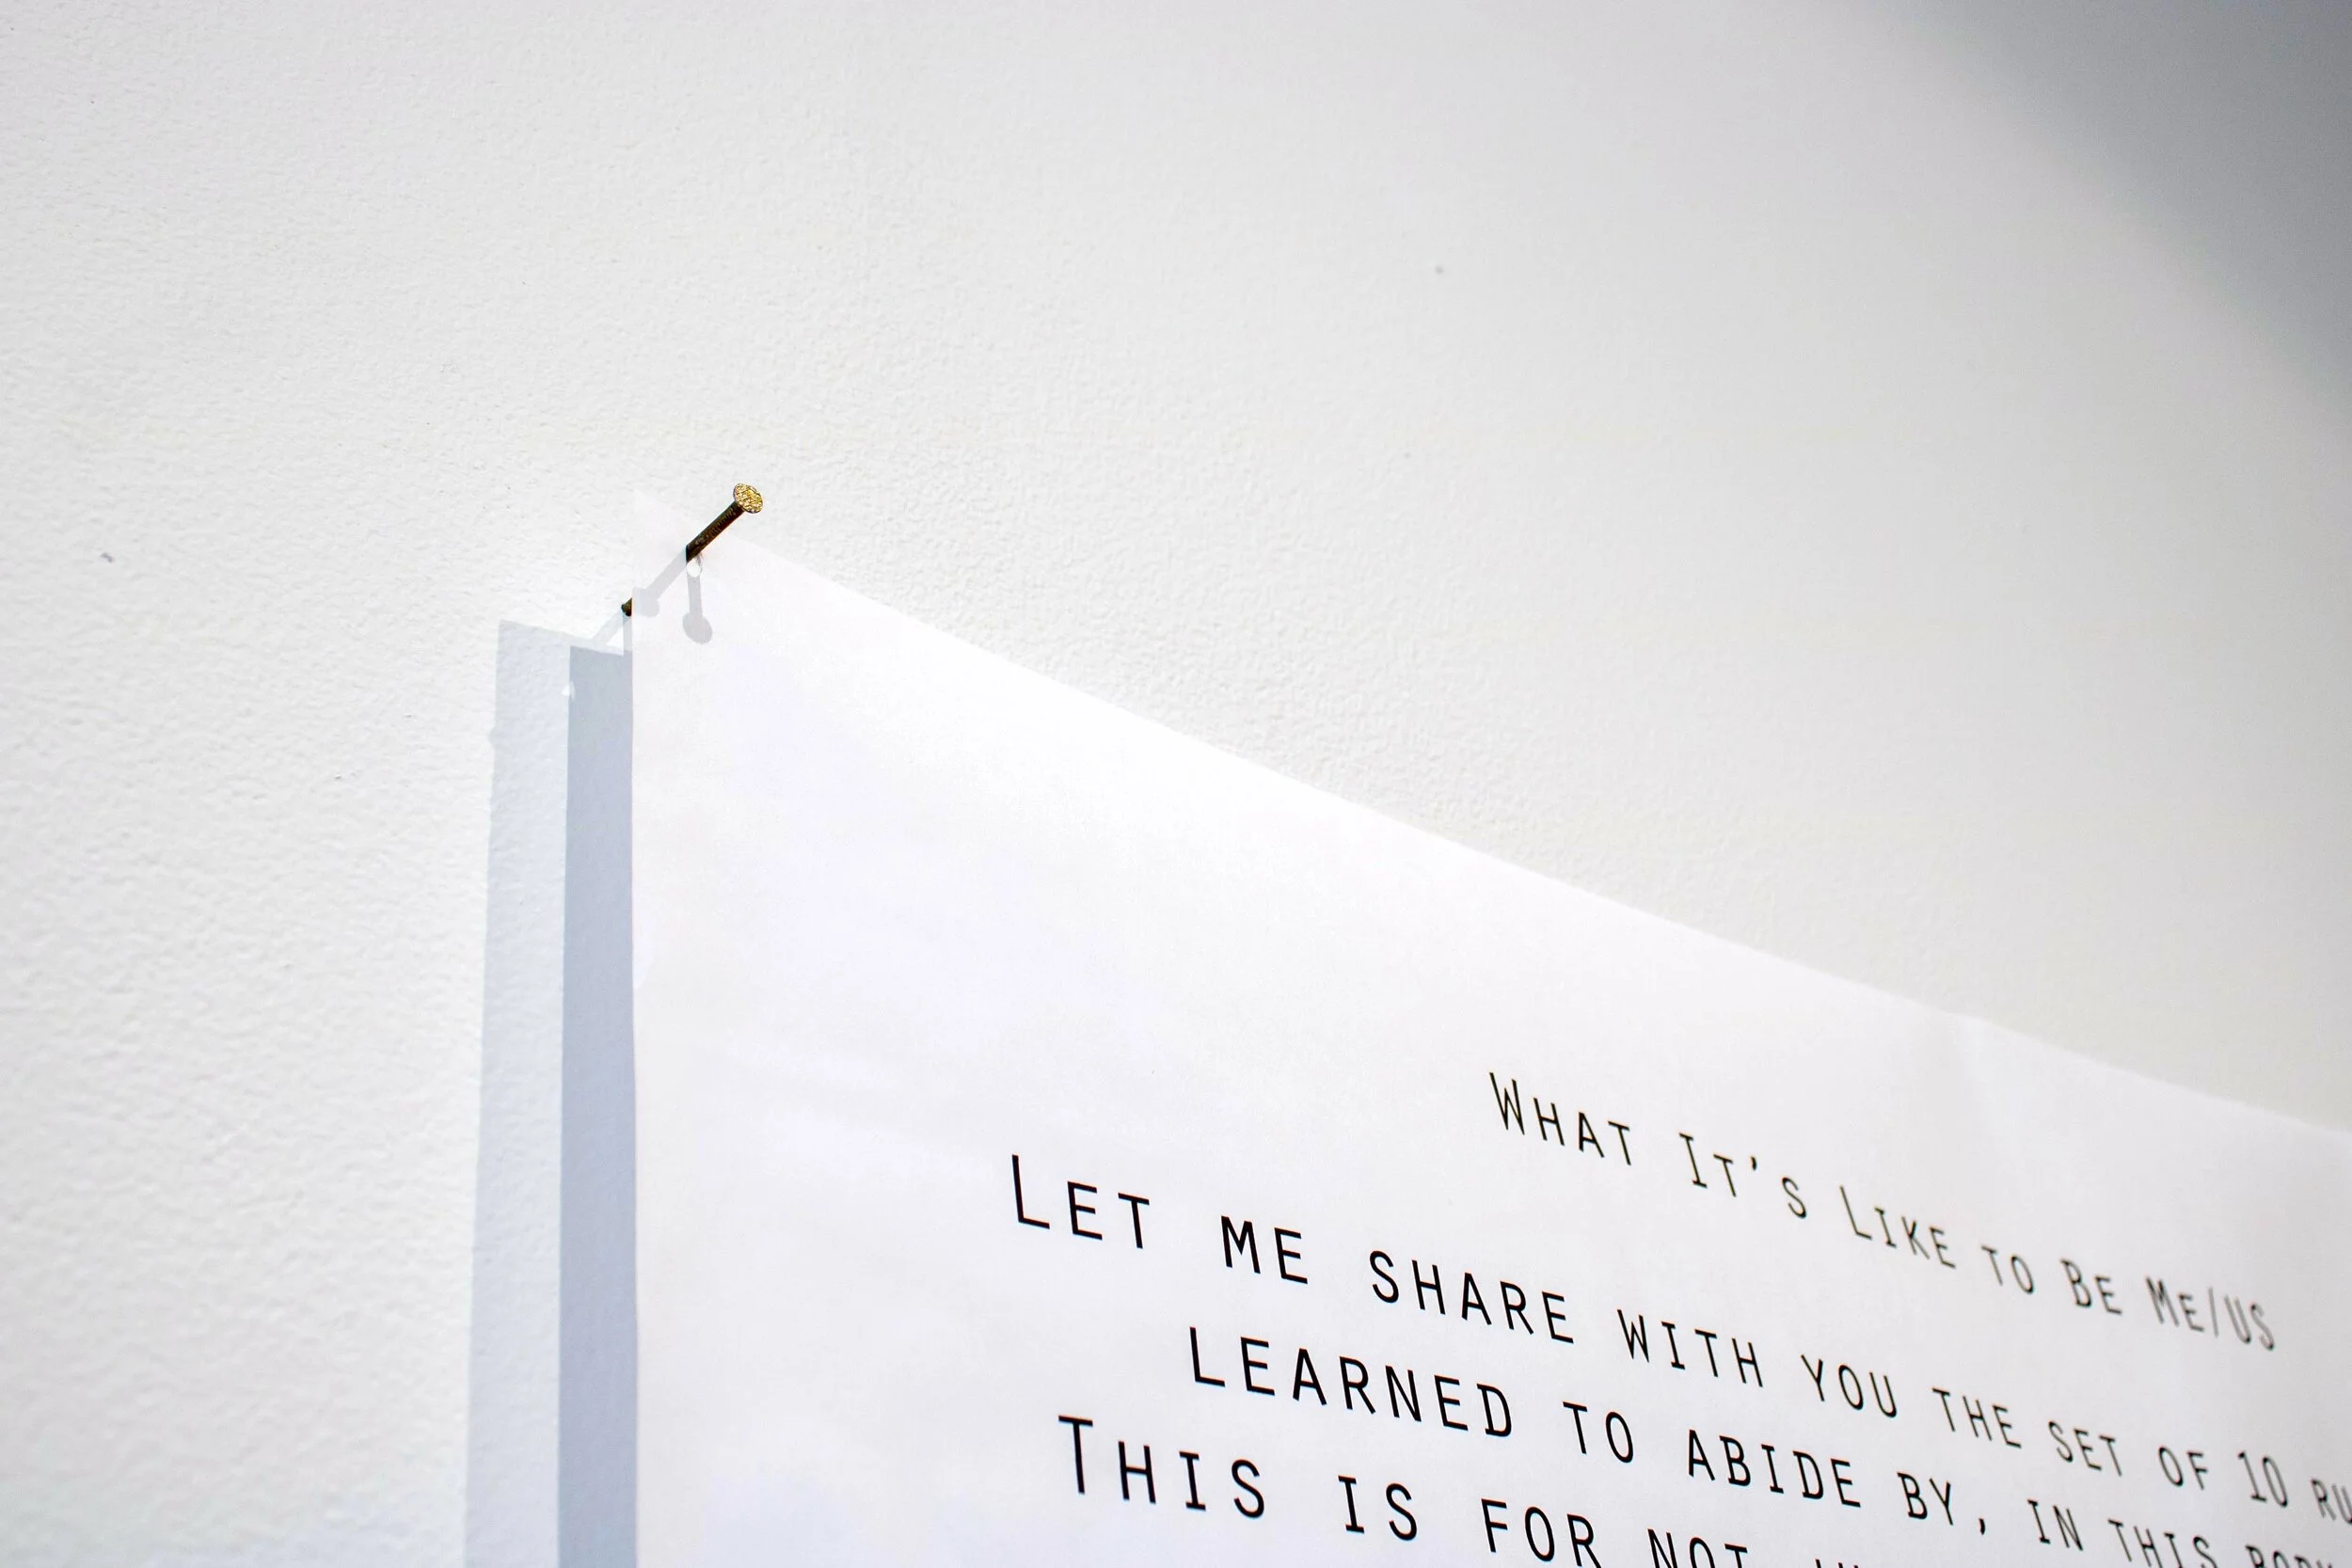 What It's Like to Be Me/us
Let me share with you the set of 10
learned to abide by, in this
This is for not